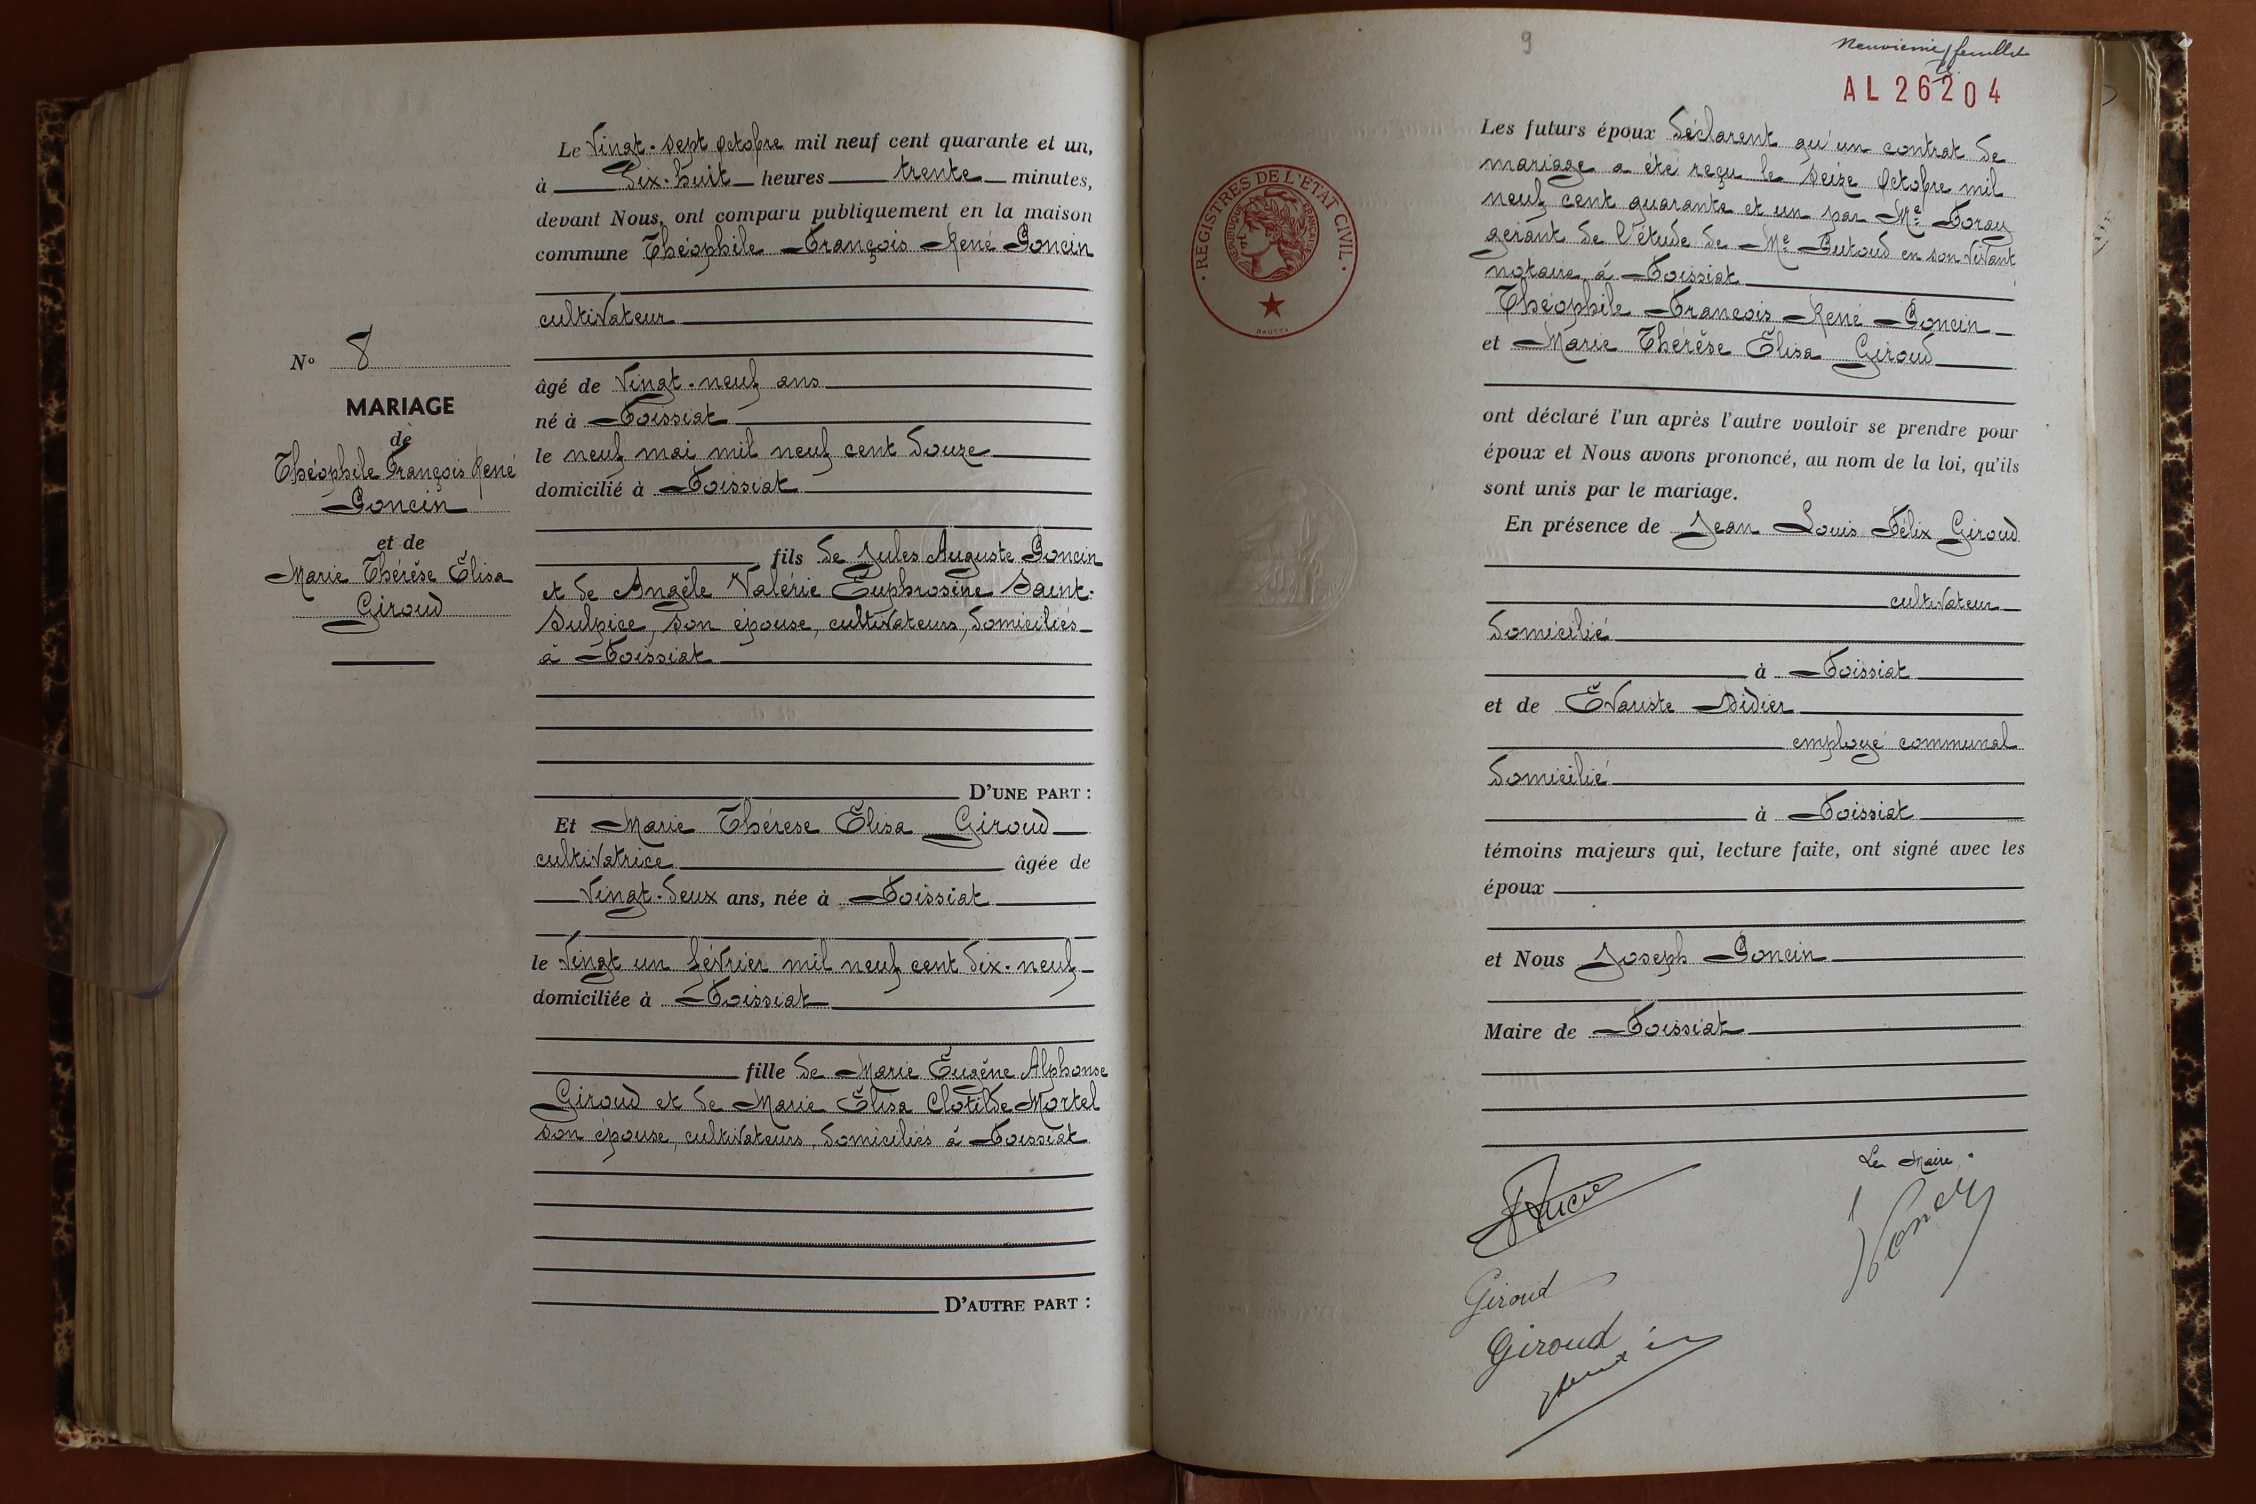 Le Vingt-sept octobre mil neuf cent quarante et un,
à dix-huit heures trente minutes,
devant Nous, ont comparu publiquement en la maison
commune Théophile François René Poncin
cultivateur
âgé de Vingt-neuf ans
né à Foissiat
le neuf mai mil neuf cent douze
domicilié à Foissiat
fils de Jules Auguste Poncin
et de Angèle Valérie Euphrosine Saint-
Sulpice, son épouse, cultivateurs, domiciliés
à Foissiat
D'UNE PART :
Et Marie Thérèse Élisa Giroud
cultivatrice âgée de
Vingt-deux ans, née à Foissiat
le Vingt un février mil neuf cent dix-neuf
domiciliée à Foissiat
fille de Marie Eugène Alphonse
Giroud et de Marie Élisa Clotilde Mortel
son épouse, cultivateurs, domiciliés à Foissiat
D'AUTRE PART :
N° 8
MARIAGE
de
Théophile François René
Poncin
et de
Marie Thérèse Élisa
Giroud
9
Neuvième feuillet
AL 26204
REGISTRES DE L'ÉTAT CIVIL
RÉPUBLIQUE FRANÇAISE
Les futurs époux déclarent qu'un contrat de
mariage a été reçu le seize octobre mil
neuf cent quarante et un par Me
gérant de l'étude de Me Butoud en son vivant
notaire à Foissiat
Théophile François René Poncin
et Marie Thérèse Élisa Giroud
ont déclaré l'un après l'autre vouloir se prendre pour
époux et Nous avons prononcé, au nom de la loi, qu'ils
sont unis par le mariage.
En présence de Jean Louis Félix Giroud
cultivateur
domicilié
à Foissiat
et de Évariste Didier
employé communal
domicilié
à Foissiat
témoins majeurs qui, lecture faite, ont signé avec les
époux
et Nous Joseph Poncin
Maire de Foissiat
Le Maire
Giroud
Giroud